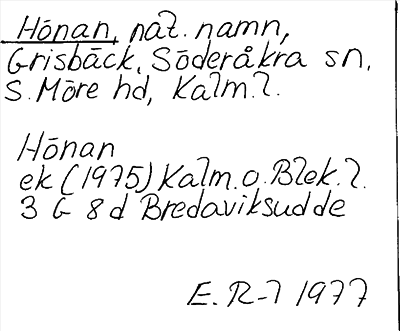 Hōnan, nat. namn,
Grisbäck, Söderåkra sn,
S. Möre hd, Kalm. l.
Hōnan
ek (1975) Kalm. o. Blek. l.
3 G 8 d Bredaviksudde
E. R-7 1977